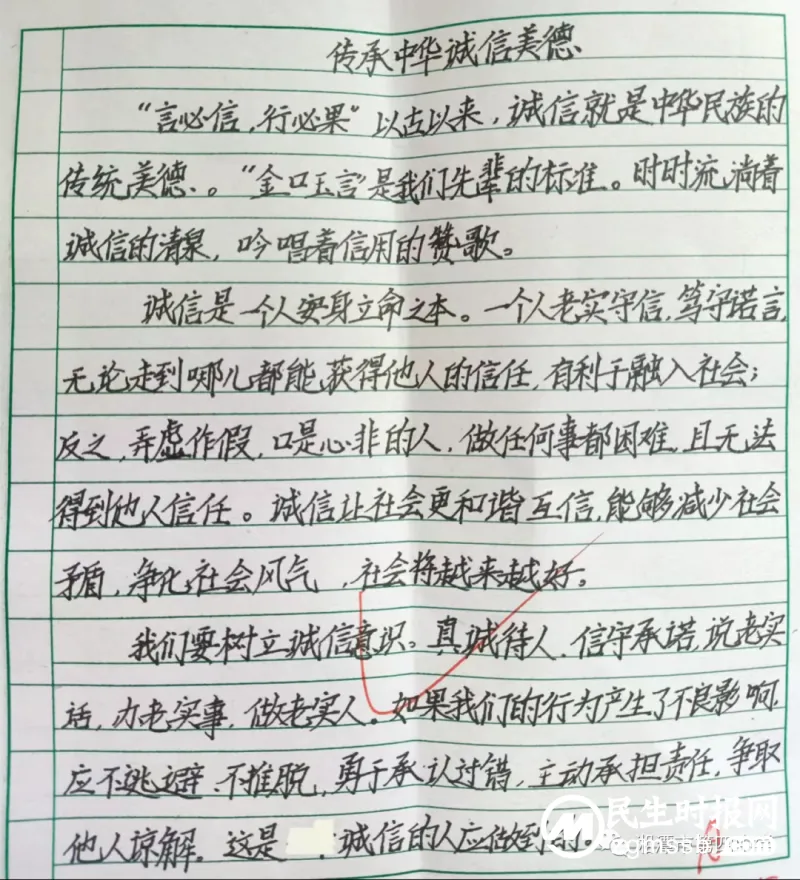 传承中华诚信美德
“言必信，行必果”以古以来，诚信就是中华民族的
传统美德。“金口玉言”是我们先辈的标准。时时流淌着
诚信的清泉，吟唱着信用的赞歌。
诚信是一个人安身立命之本。一个人老实守信，笃守诺言，
无论走到哪儿都能获得他人的信任，有利于融入社会；
反之，弄虚作假，口是心非的人，做任何事都困难，且无法
得到他人信任。诚信让社会更和谐互信，能够减少社会
矛盾，净化社会风气，社会将越来越好。
我们要树立诚信意识。真诚待人，信守承诺，说老实
话，办老实事，做老实人。如果我们的行为产生了不良影响，
应不逃避、不推脱，勇于承认过错，主动承担责任，争取
他人谅解。这是诚信的人应做到的。
民生时报网